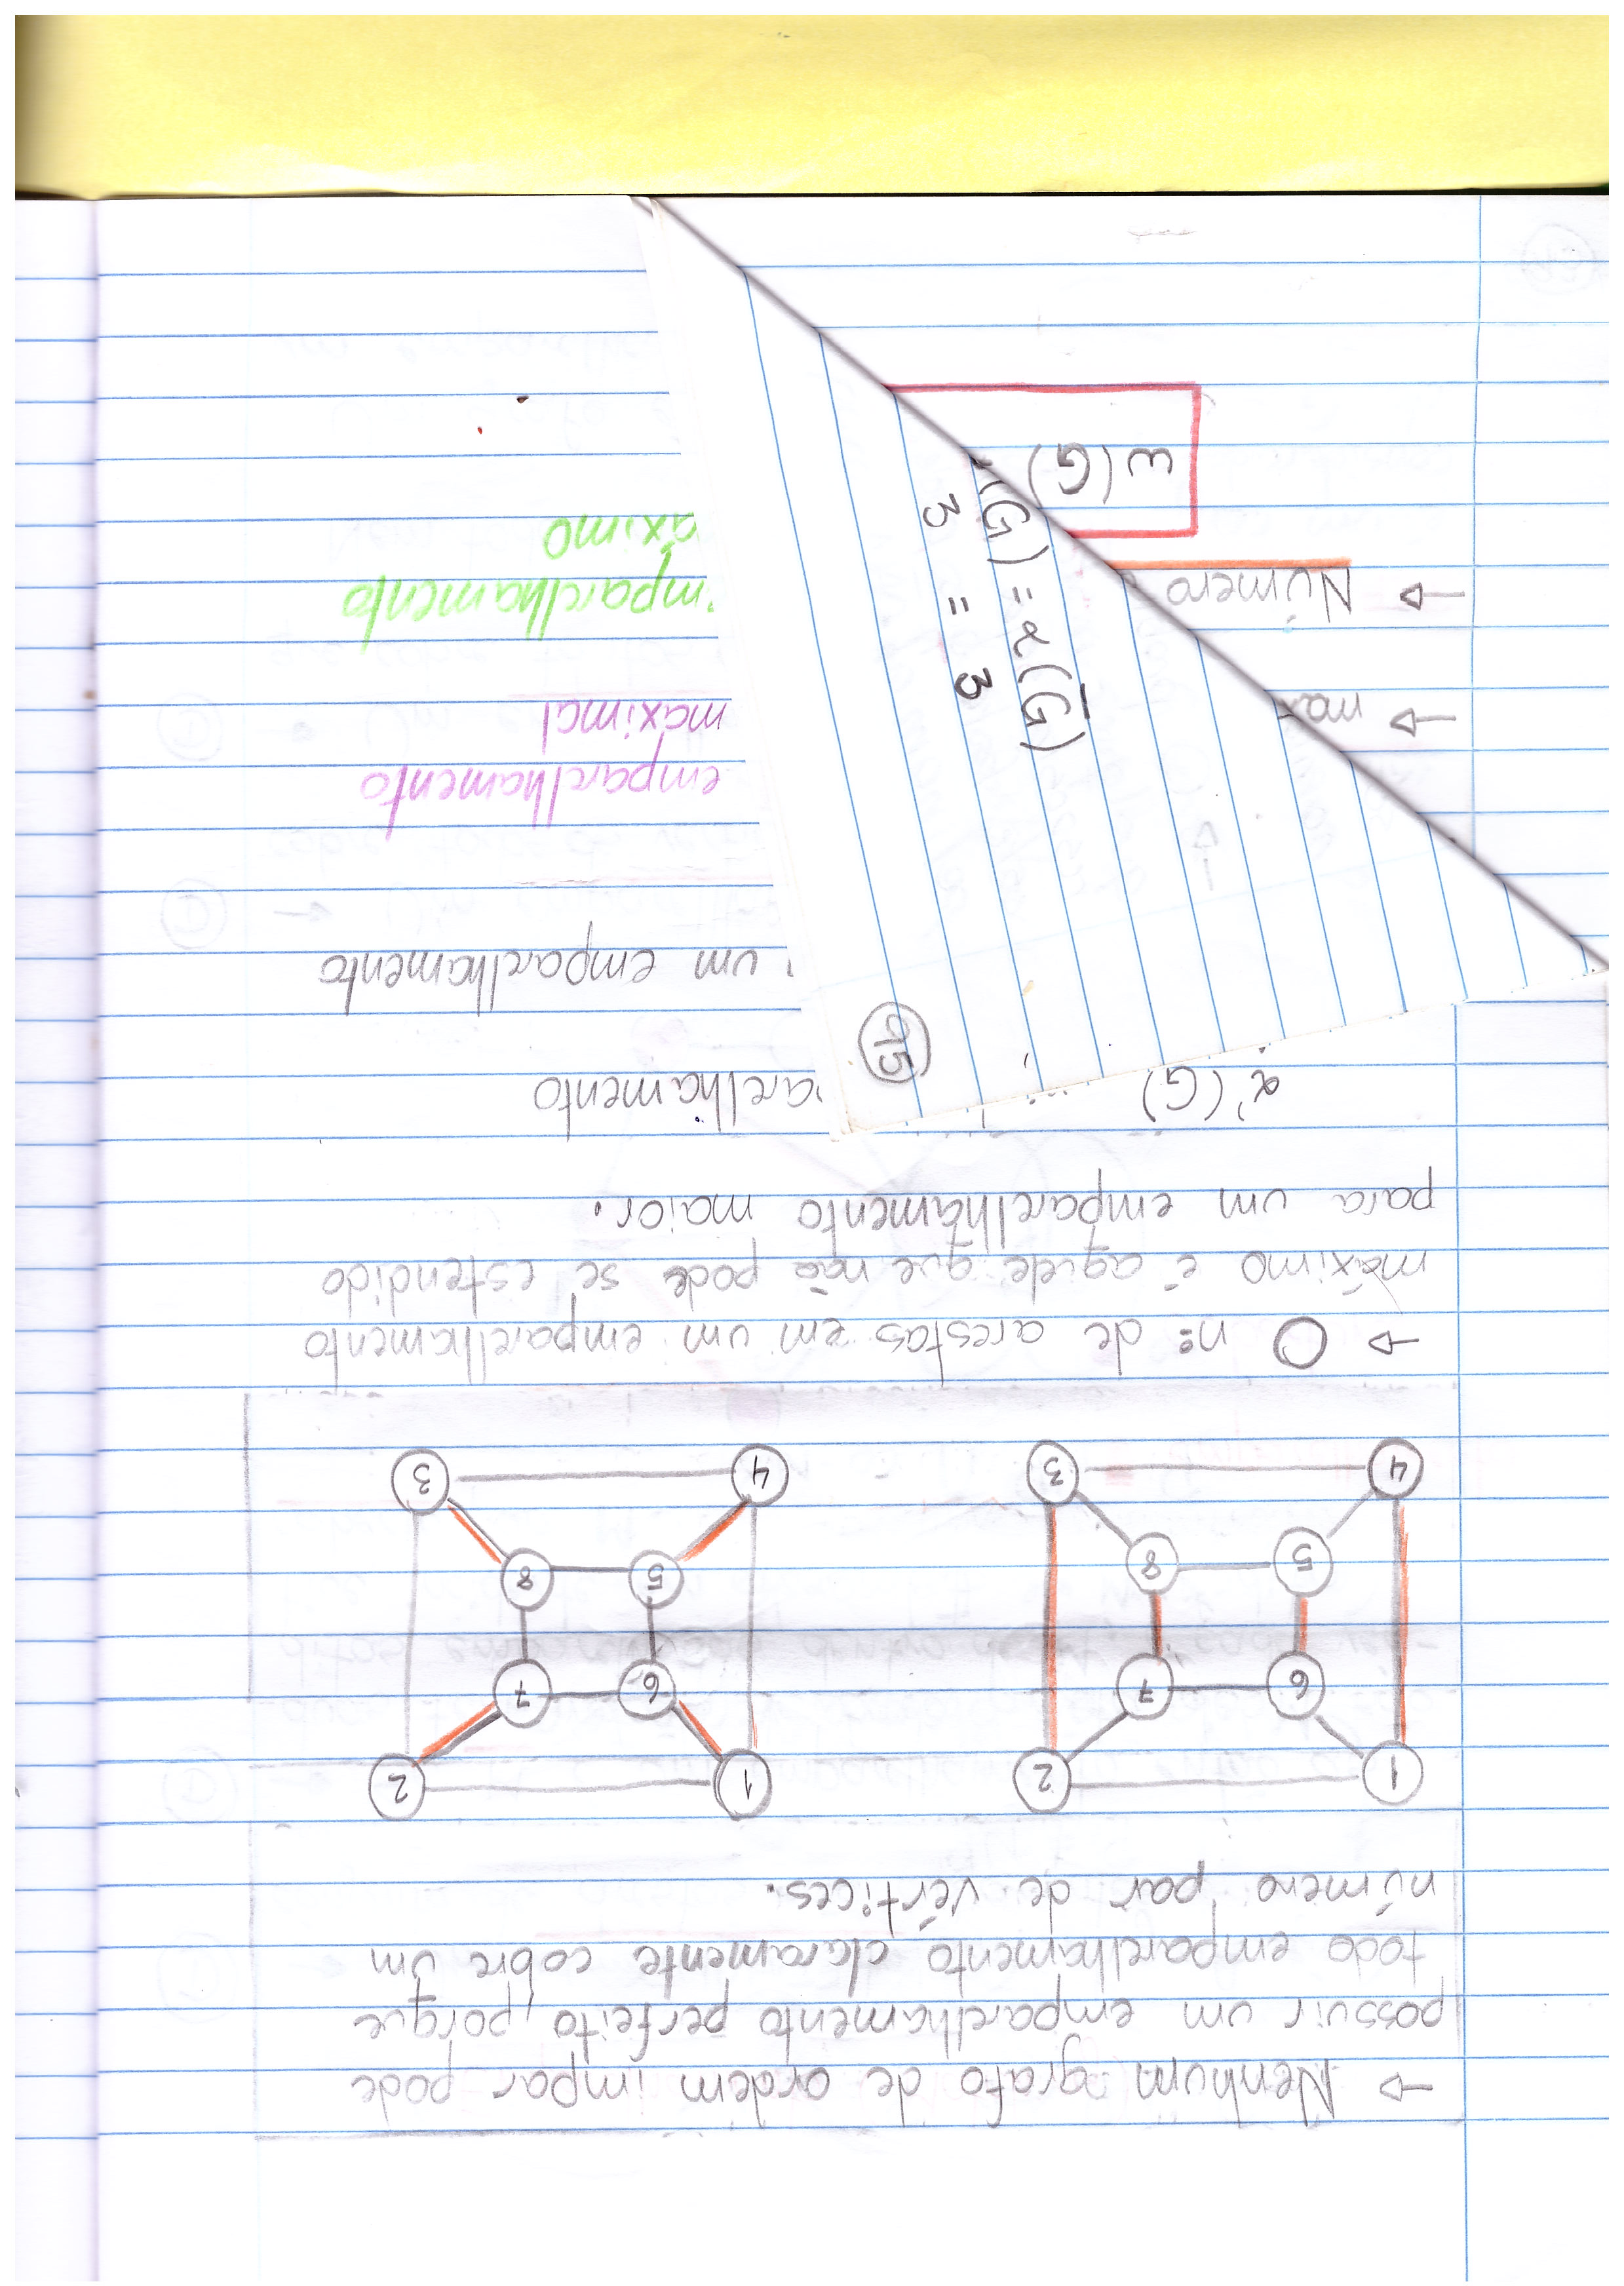 → Nenhum grafo de ordem impar pode
possuir um emparelhamento perfeito, porque
todo emparelhamento claramente cobre um
número par de vértices.
1 2
6 7
5 8
4 3
1 2
6 7
5 8
4 3
→ O nº de arestas em um emparelhamento
máximo é aquele que não pode se estendido
para um emparelhamento maior.
α'(G) arelhamento
um emparelhamento
emparelhamento
→ max maximal
→ Número mparelhamento
áximo
ω(G)
95
(G) = α(G̅)
3 = 3